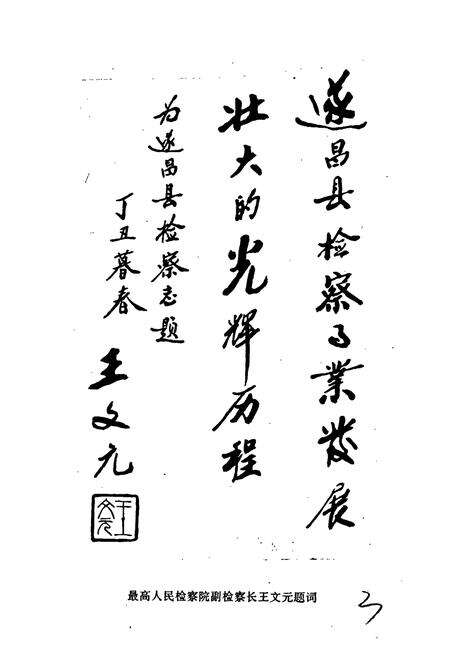 遂昌县检察事业發展
壮大的光辉历程
为遂昌县检察志题
丁丑暮春
王文元
王文元
最高人民检察院副检察长王文元题词
3